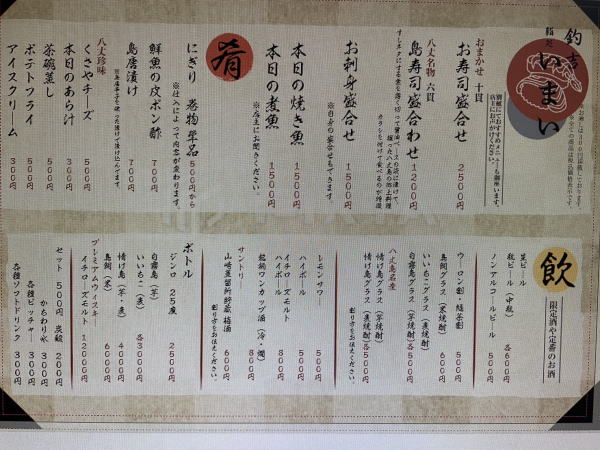 釣吉
鮨処
いまい
おまかせ 十貫
お寿司盛合せ 2500円
八丈名物 六貫
島寿司盛合わせ 1200円
お刺身盛合せ 1500円
※自身の盛合せもできます。
本日の焼き魚 1500円
本日の煮魚 1500円
※店主にお聞きください。
肴
にぎり 巻物 単品 500円から
※仕入によって内容が変わります。
鮮魚の皮ポン酢 700円
島唐漬け 700円
八丈珍味
くさやチーズ 500円
本日のあら汁 300円
茶碗蒸し 500円
ポテトフライ 500円
アイスクリーム 300円
飲
限定酒や定番のお酒
生ビール
瓶ビール(中瓶) 各600円
ノンアルコールビール 500円
ウーロン割・緑茶割 500円
島鯛グラス(米焼酎) 600円
いいちこグラス(麦焼酎)
白霧島グラス(芋焼酎) 各500円
八丈島名産
情け島グラス(芋焼酎)
情け島グラス(麦焼酎) 各500円
割り方をお伝えください。
レモンサワー 500円
ハイボール 500円
イチローズモルト
ハイボール 800円
銘柄ワンカップ酒(冷・燗) 800円
サントリー
山崎蒸留所貯蔵 梅酒 600円
割り方をお伝えください。
ボトル
ジンロ 25度 2500円
白霧島(芋)
いいちこ(麦) 各3000円
情け島(芋・麦) 4000円
島鯛(米) 6000円
プレミアムウィスキー
イチローズモルト 12000円
セット 500円 炭酸 200円
かちわり氷 300円
各種ピッチャー 300円
各種ソフトドリンク 300円